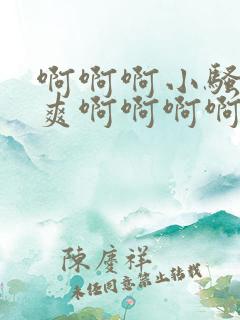 啊啊啊小骚
爽啊啊啊啊
陳慶祥
未经同意禁止转载